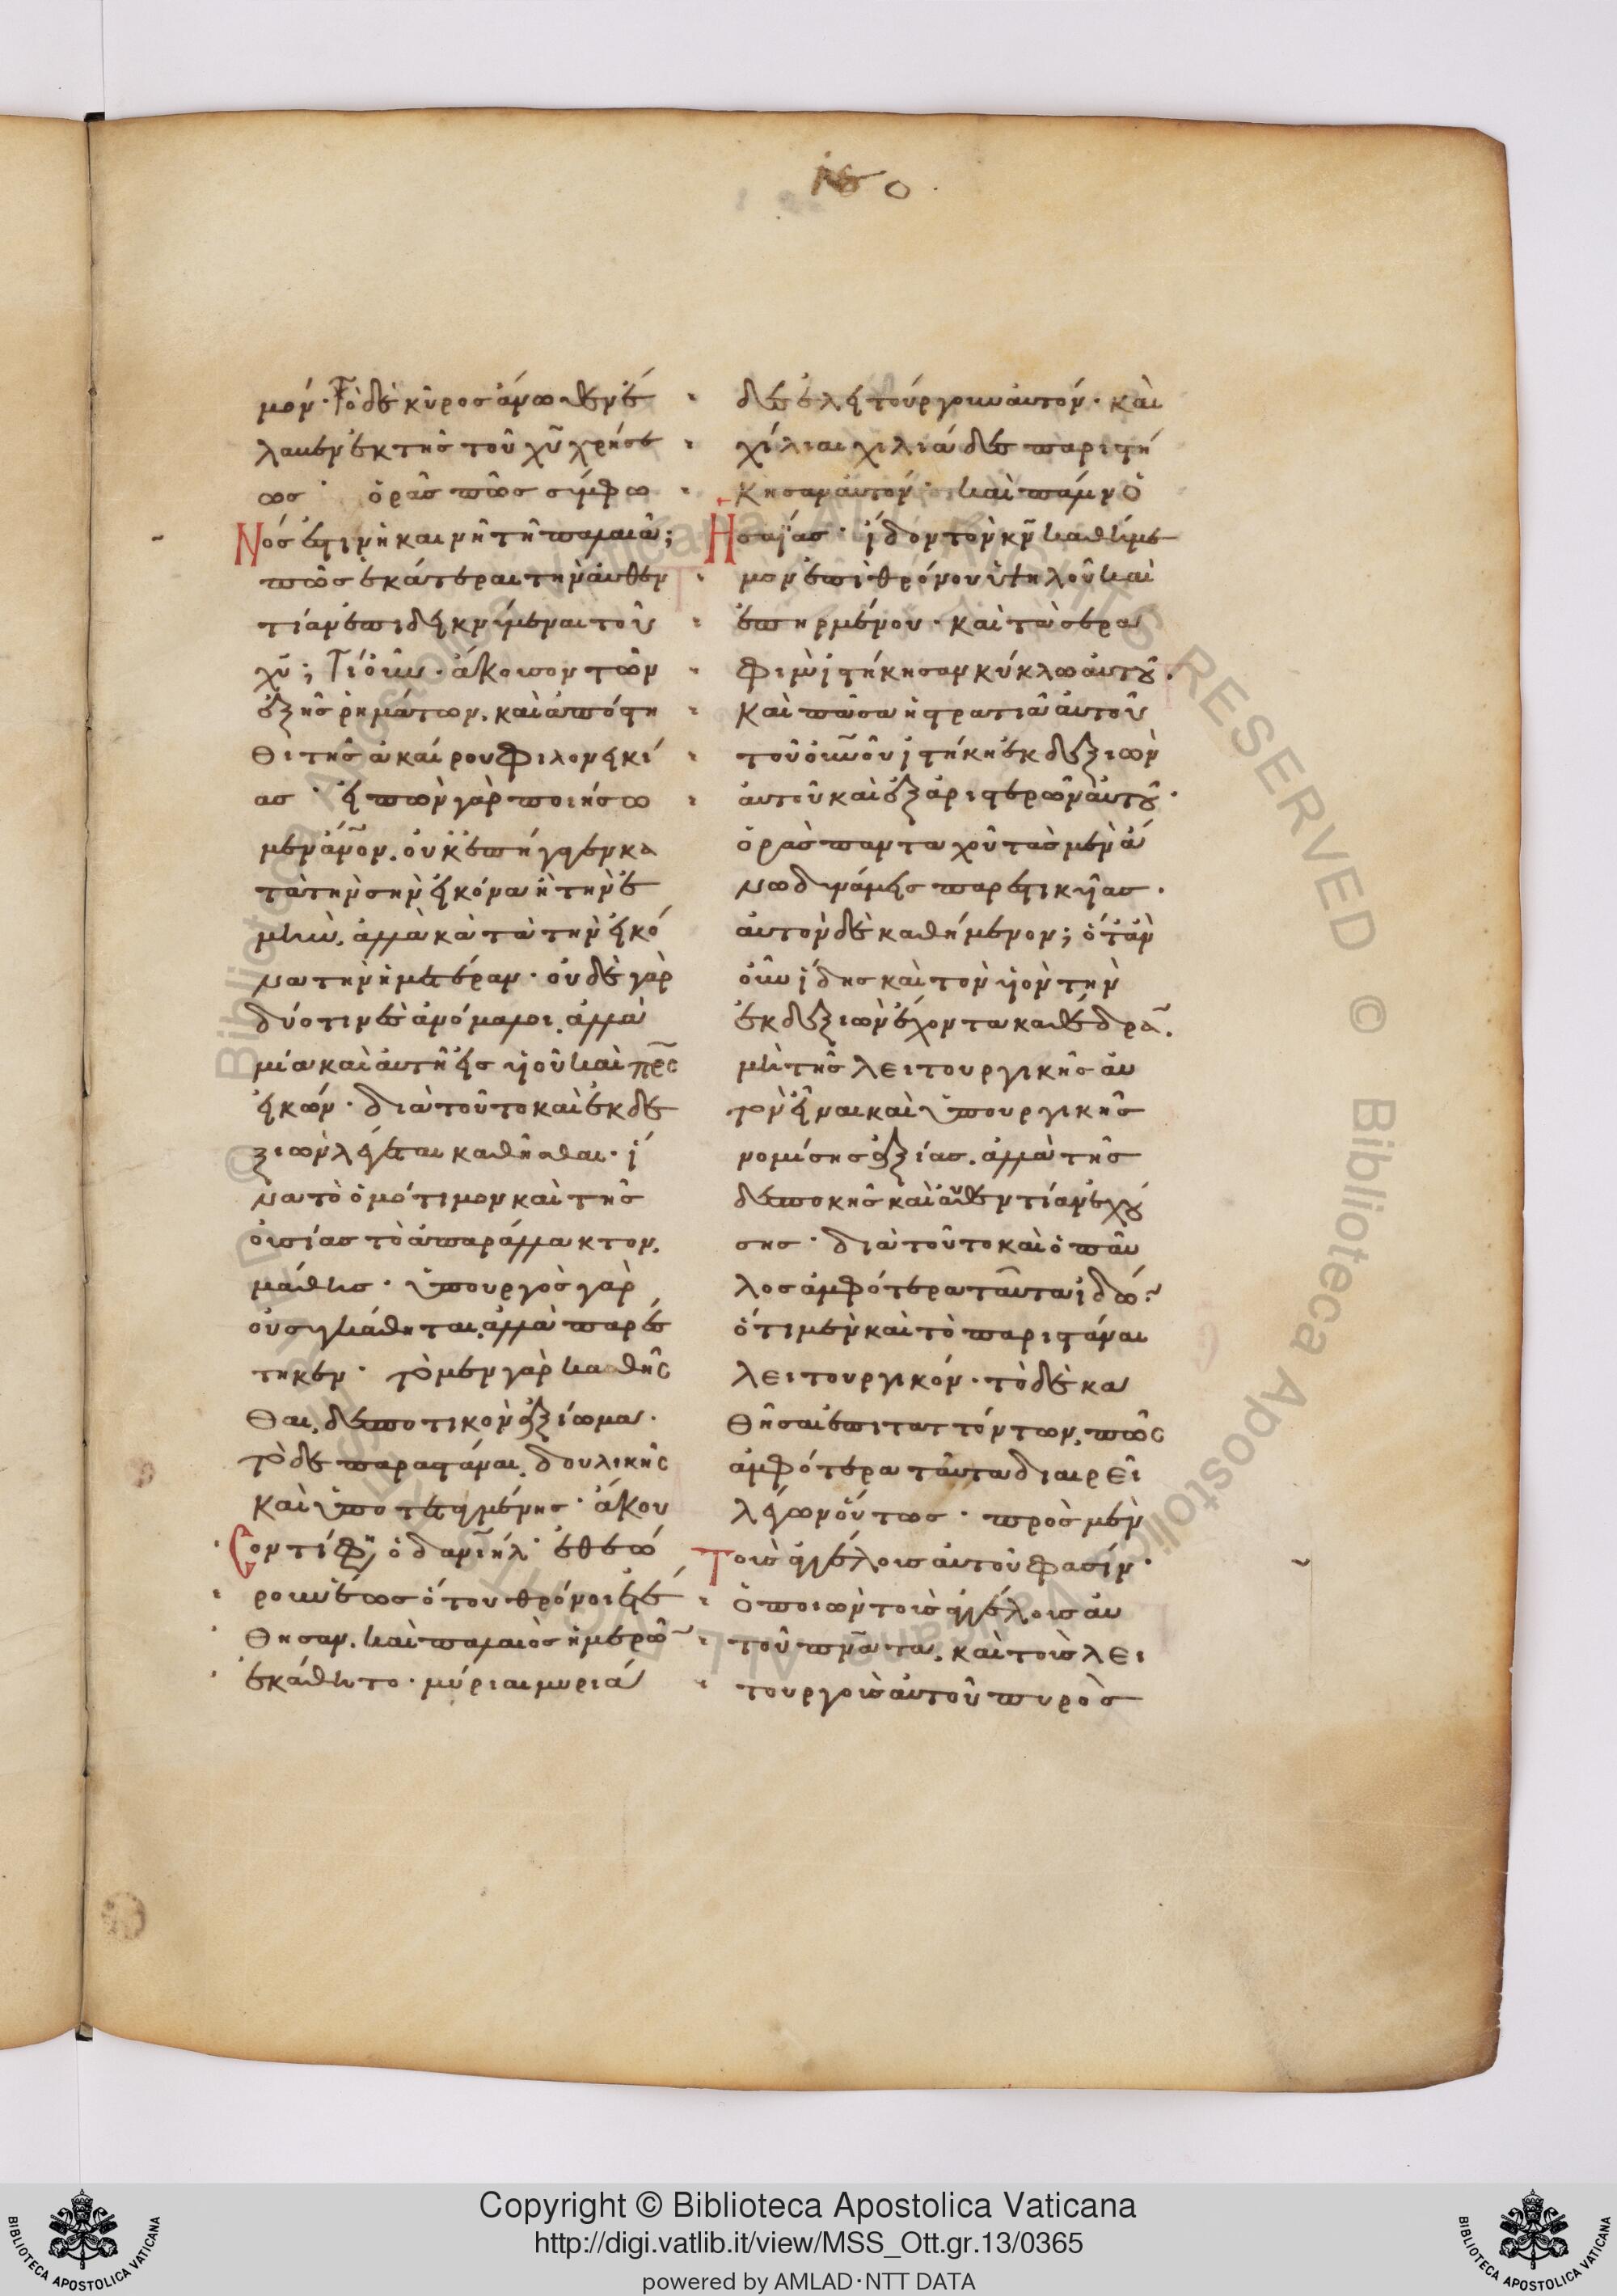 μον· ὁ δὲ κῦρος ἄνωθεν ἔ
λαμεν ἐκ τῆς τοῦ χῦ χρήσε
ως· ὁρᾶς πῶς σύμφω
Νός ἐστιν ἡ καινὴ τῆ παλαιᾶ;
πῶς ἑκάτεραι τὴν αὐθεν
τίαν ἐπιδεικνύμεναι τοῦ
χῦ; Τί οὖν· ἄκουσον τῶν
ἑξῆς ῥημάτων. καὶ ἀπόστη
θι τῆς ἀκαίρου φιλονεικί
ας· εἰπὼν γὰρ ποιήσω
μεν ἄνον. οὐκ ἐπήγαγεν κα
τὰ τὴν σὴν εἰκόνα ἢ τὴν ἐ
μὴν. ἀλλὰ κατὰ τὴν εἰκό
να τὴν ἡμετέραν· οὐδὲ γὰρ
δύο τινὲς ἀνόμαλοι. ἀλλὰ
μία καὶ αὐτὴ εἰς υἱοῦ καὶ πρς
εἰκών· διὰ τοῦτο καὶ ἐκ δε
ξιῶν λέγεται καθῆσθαι· ἵ
να τὸ ὁμότιμον καὶ τῆς
οὐσίας τὸ ἀπαράλλακτον.
μάθης· ὑπουργὸς γὰρ
οὐ συγκάθηται. ἀλλὰ παρέσ
τηκεν· τὸ μεν γὰρ καθῆς
θαι, δεσποτικὸν ἀξίωμα·
τὸ δε παραστάναι, δουλικῆς
καὶ ὑποτεταγμένης· ἄκου
Σον τί φη ὁ δανιήλ· ἐθεώ
ρουν ἕως ὅτου θρόνοι ἐτέ
θησαν. καὶ παλαιὸς ἡμερῶ
ἐκάθητο· μύριαι μυριά
δες ἐλειτούργουν αὐτόν· καὶ
χίλιαι χιλιάδες παριστή
κησαν αὐτόν· καὶ πάλιν ὁ
Ησαΐας· ἴδον τὸν κν καθήμε
μον ἐπὶ θρόνου ὑψηλοῦ καὶ
ἐπηρμένου· καὶ τὰ σερα
φιμ ἱστήκησαν κύκλω αὐτοῦ.
Καὶ πᾶσα ἡ στρατιὰ αὐτοῦ
τοῦ οὐνοῦ ἱστήκη ἐκ δεξιῶν
αὐτοῦ καὶ ἐξ ἀριστερῶν αὐτοῦ·
ὁρᾶς πανταχοῦ τὰς μὲν ἄ
νω δυνάμεις παρεστικυίας.
αὐτὸν δὲ καθήμενον; ὅταν
οὖν ἴδης καὶ τὸν υἱὸν τὴν
ἐκ δεξιῶν ἔχοντα καθέδρα.
μὴ τῆς λειτουργικῆς αυ
τὸν εἶναι καὶ ὑπουργικῆς
νομίσης ἀξίας. ἀλλὰ τῆς
δεσποτικῆς καὶ αὐθεντίαν ἐχού
σης· διὰ τοῦτο καὶ ὁ παῦ
λος ἀμφότερα ταῦτα ἰδώ·
ὅτι μὲν καὶ τὸ παριστάναι
λειτουργικόν· τὸ δὲ κα
θῆσαι ἐπιταττόντων. πῶς
ἀμφότερα ταῦτα διαιρεῖ
λέγων οὕτως· πρὸς μὲν
Τοὺς ἀγγέλους αὐτοῦ φασίν·
ὁ ποιῶν τοὺς ἀγγέλους αυ
τοῦ πνατα. καὶ τοὺς λει
τουργοὺς αὐτοῦ πυρὸς
Copyright © Biblioteca Apostolica Vaticana
http://digi.vatlib.it/view/MSS_Ott.gr.13/0365
powered by AMLAD·NTT DATA